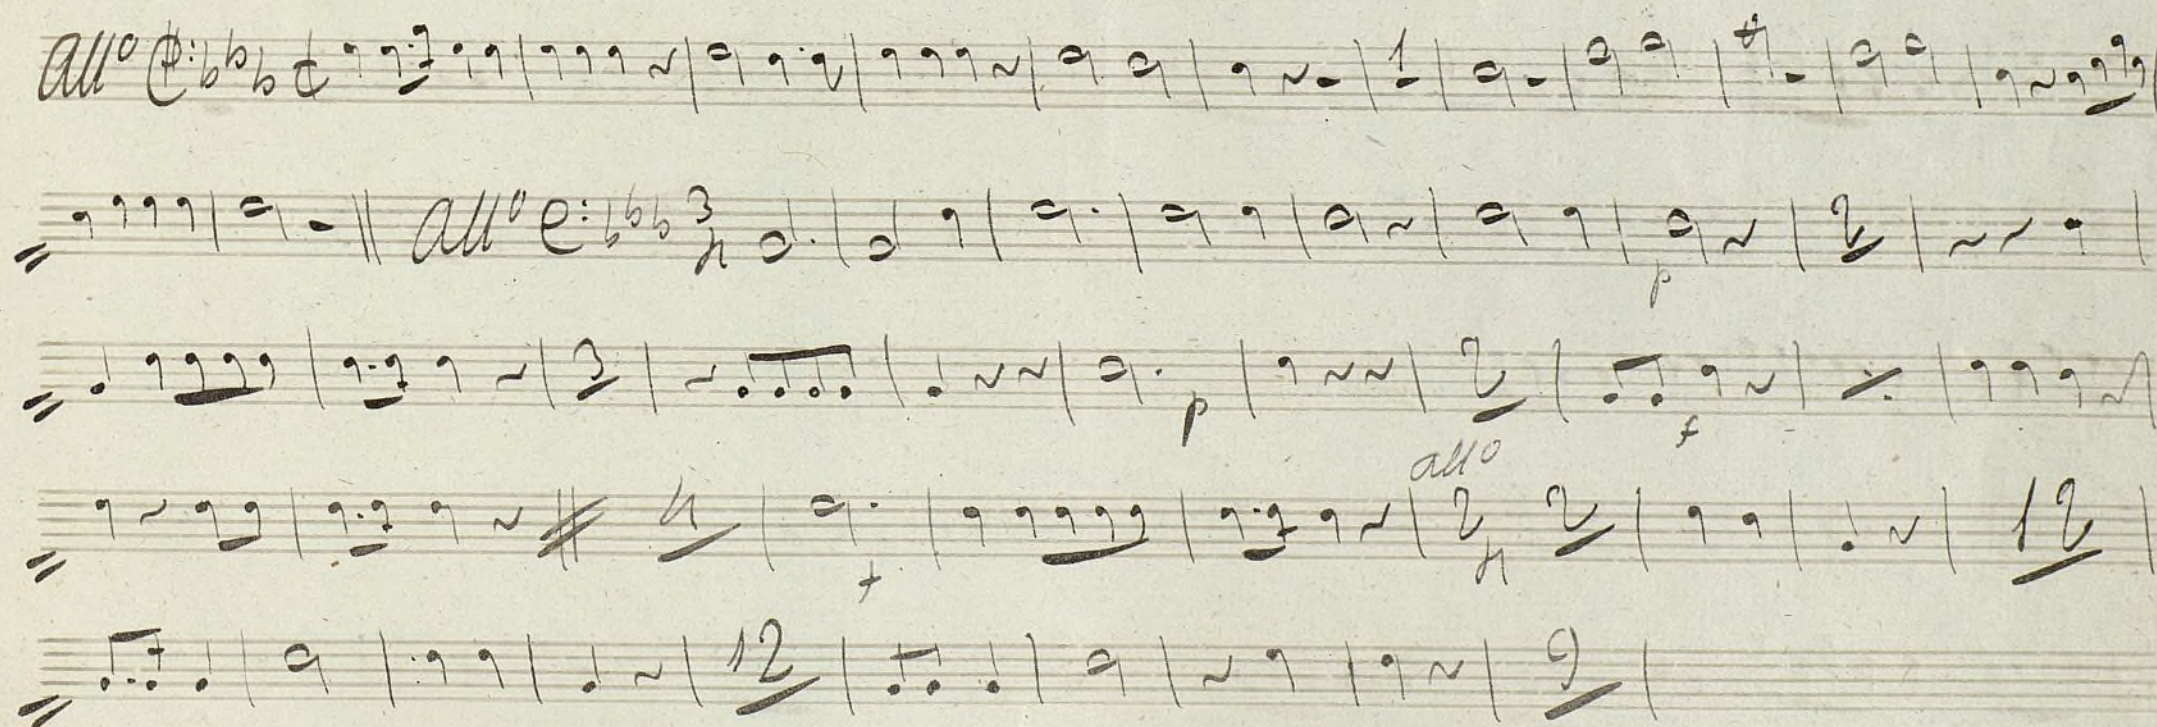 all° 1
all° 3 4 2 p
3 p 2 f
4 f all° 2 4 2 12
12 9